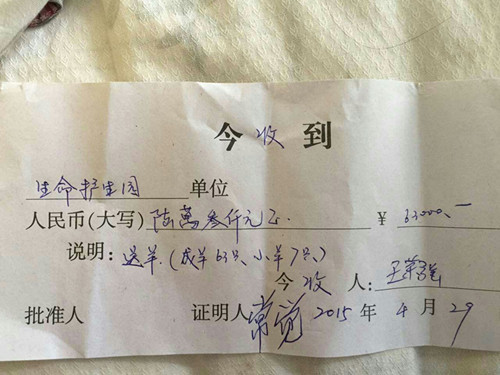 今收到
生命护生园 单位
人民币(大写) 陆萬叁仟元正. ¥ 63000.—
说明: 送羊.(成羊63只、小羊7只)
今收人: 王
批准人 证明人 常觉 2015年4月29